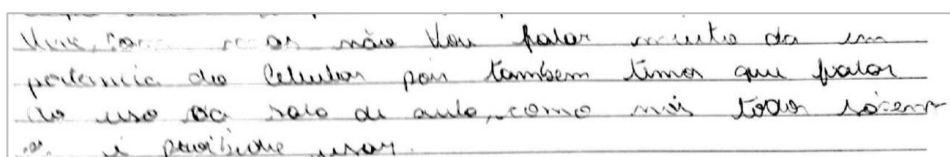 mas não vou falar muito da im
portancia do Celular pois tambem temos que falar
do uso na sala de aula, como nós todos
é proibido usar.